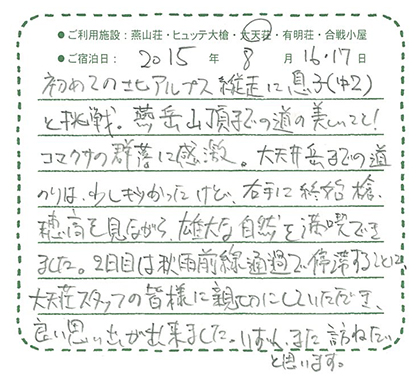 ●ご利用施設：燕山荘・ヒュッテ大槍・大天荘・有明荘・合戦小屋
●ご宿泊日： 2015 年 8 月 16・17 日
初めての北アルプス縦走に息子(中2)
と挑戦。燕岳山頂までの道の美しいこと！
コマクサの群落に感激。大天井岳までの道
のりは、少しキツかったけど、右手に終始槍・
穂高を見ながら、雄大な自然を満喫でき
ました。2日目は秋雨前線通過で停滞することに。
大天荘スタッフの皆様に親切にしていただき、
良い思い出が出来ました。いずれ、また訪ねたい
と思います。